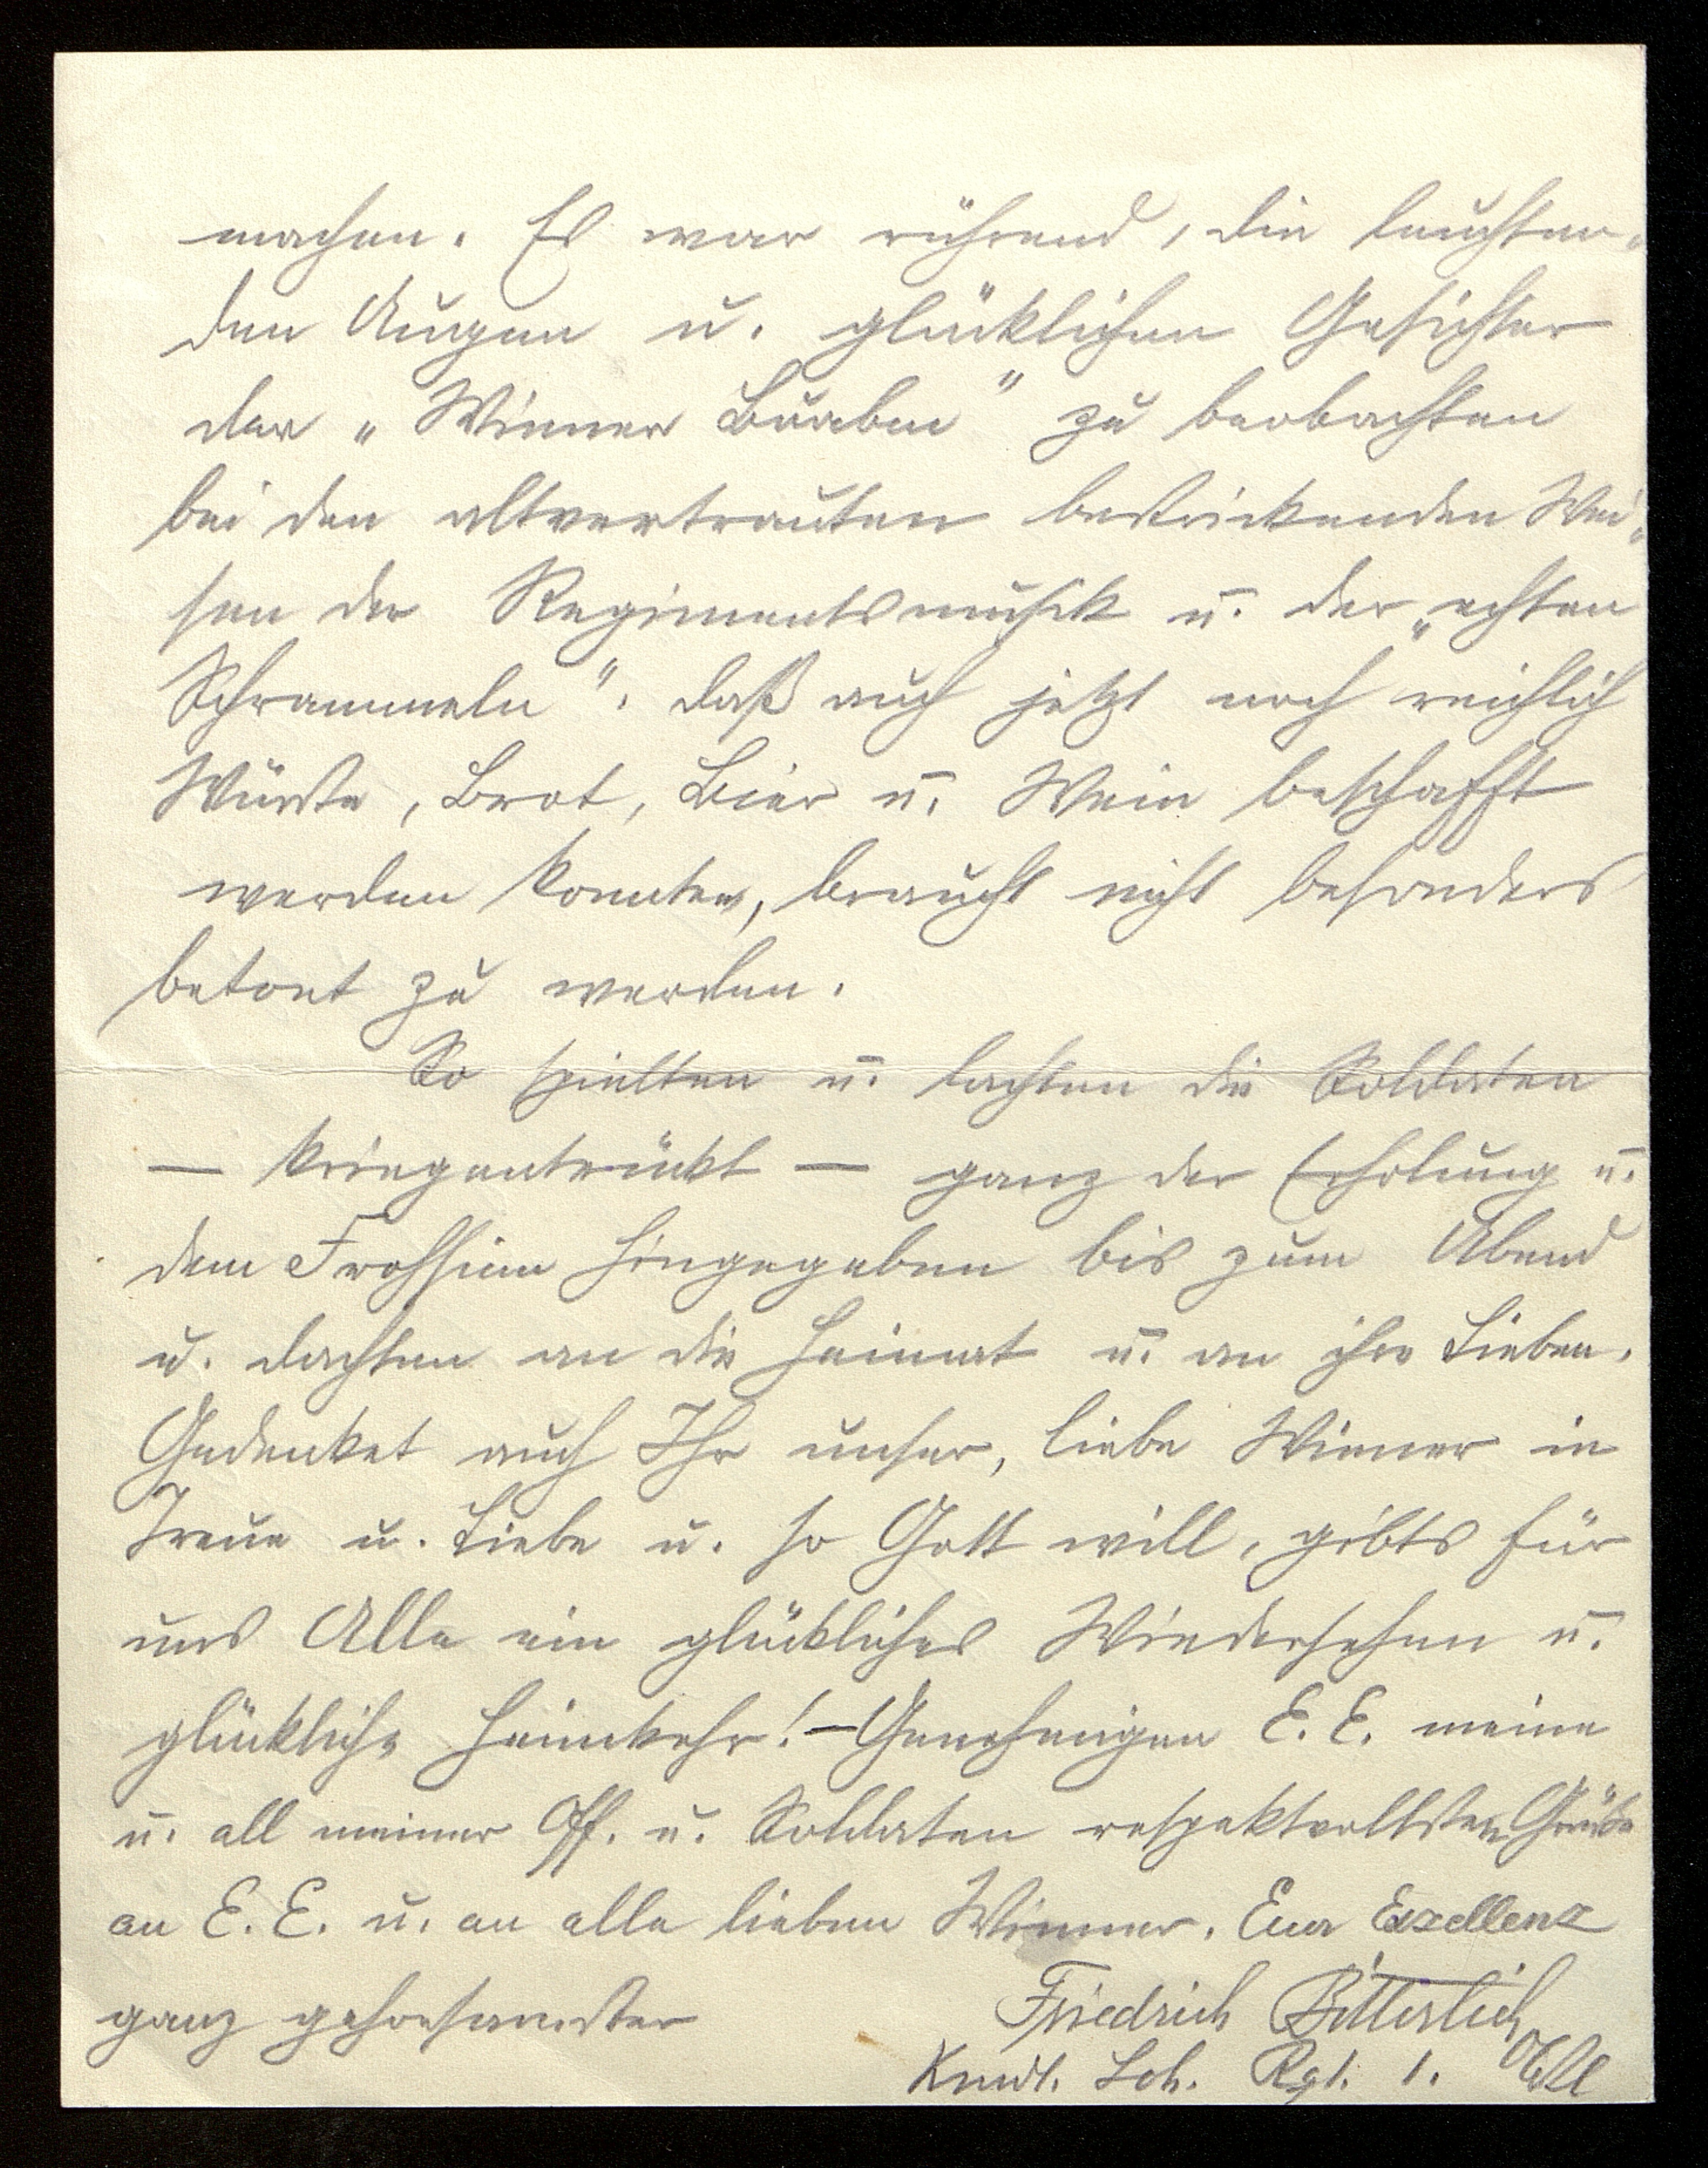 machen. Es war rührend, die leuchten-
den Augen u. glücklichen Gesichter
der „Wiener Buaben" zu beobachten
bei den altvertrauten bestrickenden Wei-
sen der Regimentsmusik u. der „echten
Schrammeln". Daß auch jetzt noch reichlich
Würste, Brot, Bier u. Wein beschafft
werden konnten, braucht nicht besonders
betont zu werden.
So spielten u. lachten die Soldaten
— kriegentrückt — ganz der Erholung u.
dem Frohsinn hingegeben bis zum Abend
u. dachten an die Heimat u. an ihre Lieben.
Gedenket auch Ihr unser, liebe Wiener in
Treue u. Liebe u. so Gott will, gibts für
uns Alle ein glückliches Wiedersehen u.
glückliche Heimkehr! — Genehmigen E. E. meine
u. all meiner Off. u. Soldaten respektvollsten Grüße
an E. E. u. an alle lieben Wiener. Euer Exzellenz
ganz gehorsamster Friedrich Bitterlich Obstl
Kmdt. Sch. Rgt. 1.